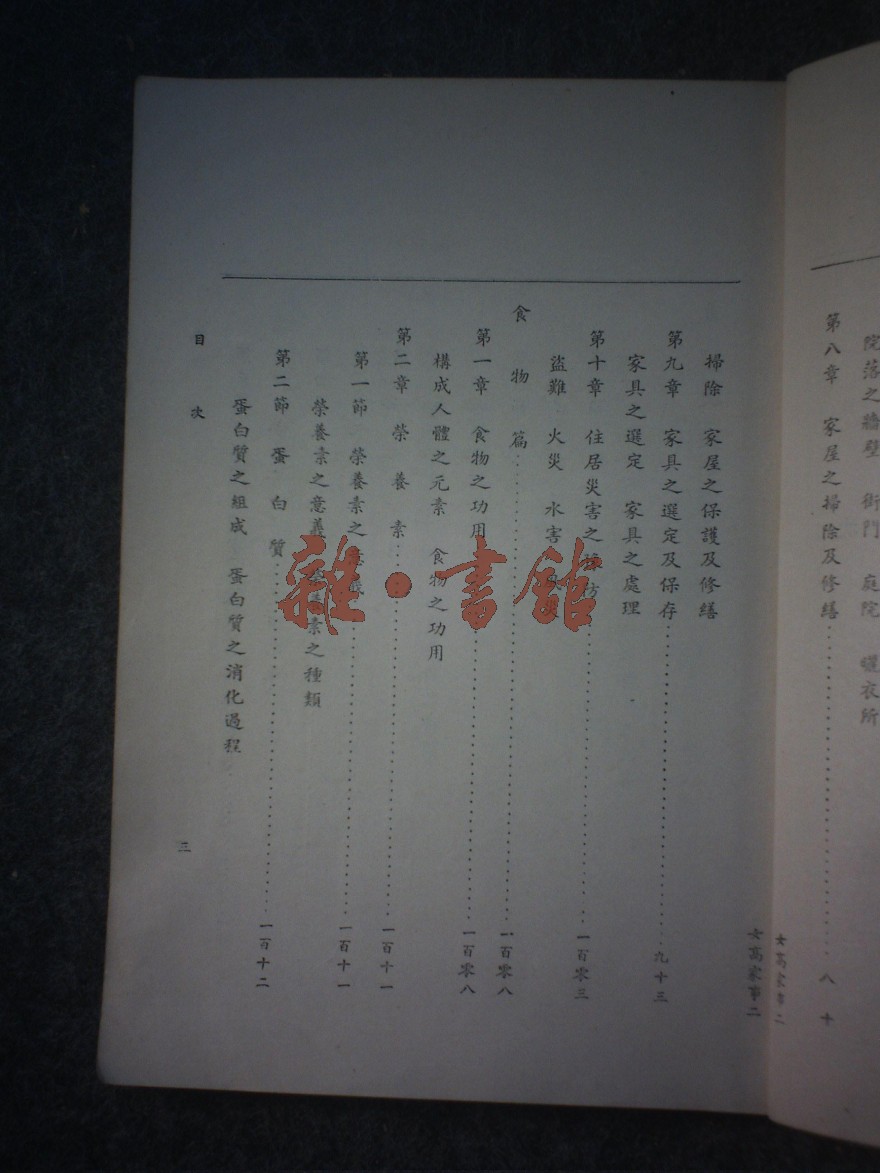 院落之牆壁 街門 庭院 曬衣所
第八章 家屋之掃除及修繕 八十
女高家事二
女高家事二
掃除 家屋之保護及修繕
第九章 家具之選定及保存 九十三
家具之選定 家具之處理
第十章 住居災害之 一百零三
盜難 火災 水害
食物篇 一百零八
第一章 食物之功用 一百零八
構成人體之元素 食物之功用
第二章 榮養素 一百十一
第一節 榮養素之 一百十一
榮養素之意義 榮養素之種類
第二節 蛋白質 一百十二
蛋白質之組成 蛋白質之消化過程
目次
三
雜·書館